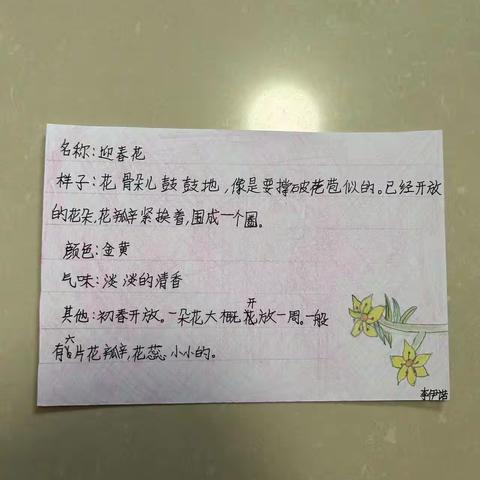 名称:迎春花
样子:花骨朵儿鼓鼓地,像是要撑破花苞似的。已经开放
的花朵,花瓣紧挨着,围成一个圈。
颜色:金黄
气味:淡淡的清香
其他:初春开放。一朵花大概开放一周。一般
有六片花瓣,花蕊小小的。
李伊诺